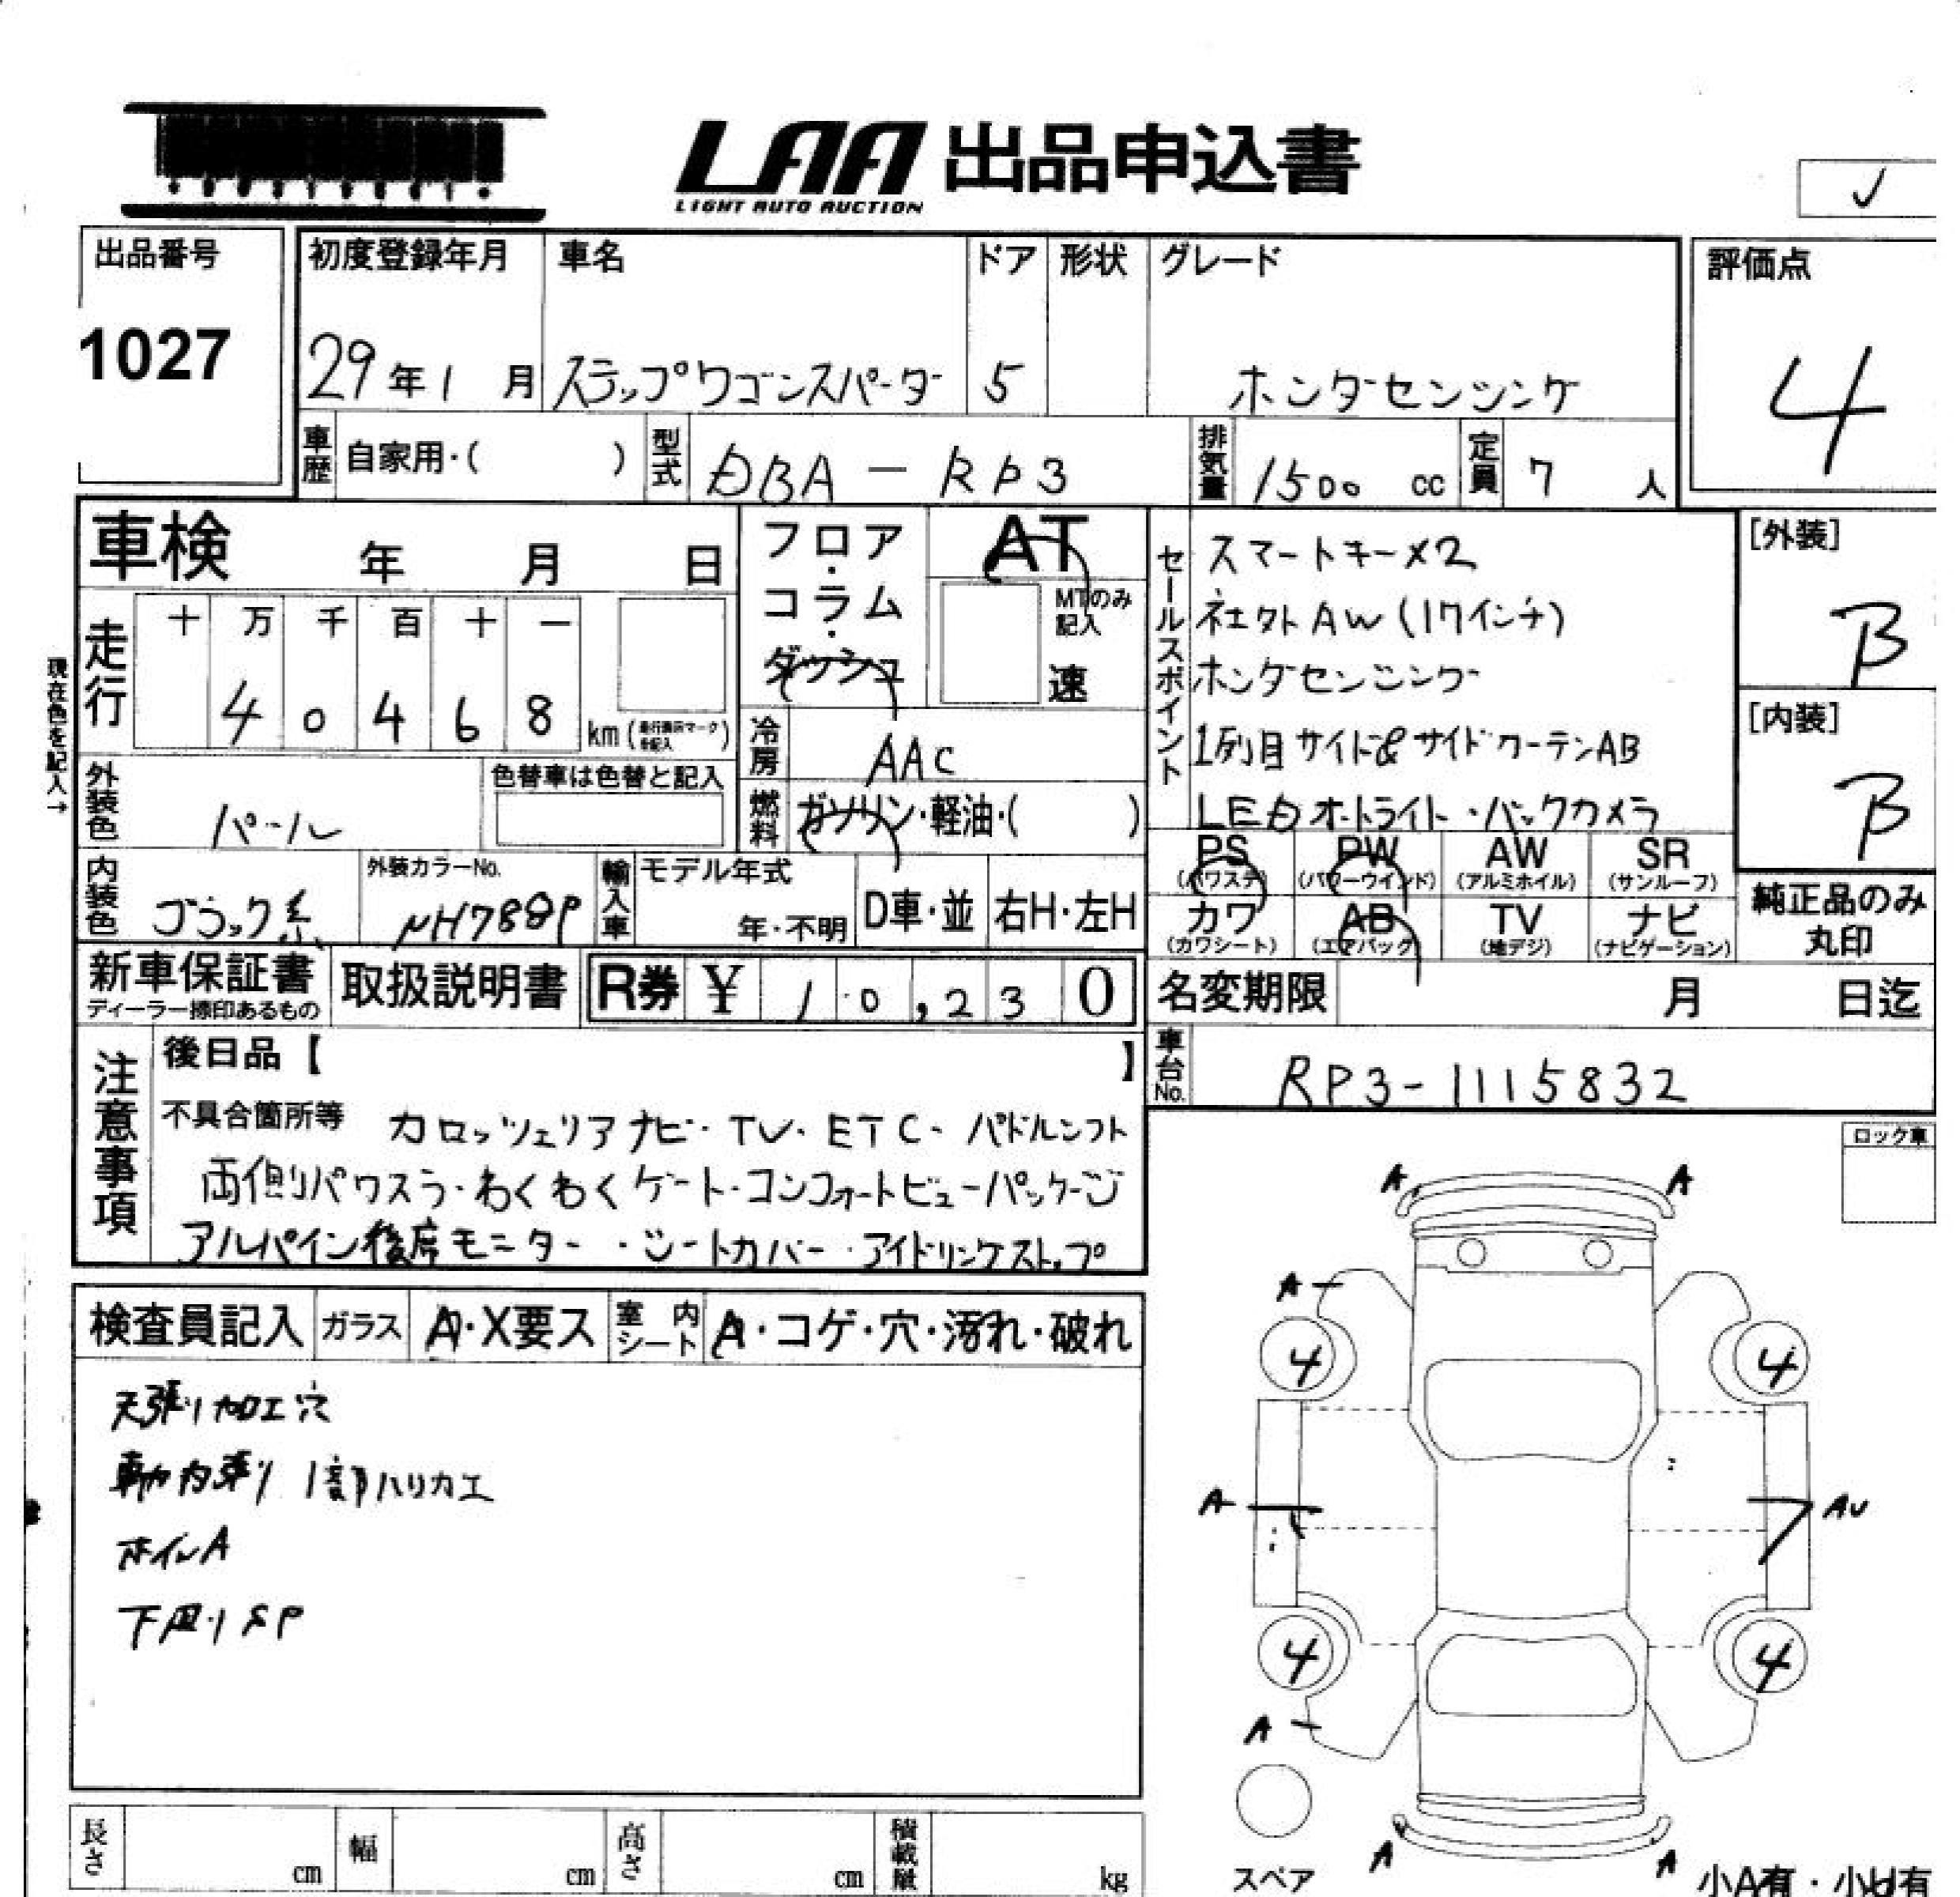 LAA 出品申込書
LIGHT AUTO AUCTION
✓
出品番号
1027
初度登録年月
29年1月
車名
ステップワゴンスパーダ
ドア
5
形状
グレード
ホンダセンシング
評価点
4
車歴
自家用・( )
型式
DBA-RP3
排気量
1500 cc
定員
7 人
車検 年 月 日
フロア・コラム・ダッシュ
AT
MTのみ記入
速
走行
十 万 千 百 十 一
4 0 4 6 8
km
現在色を記入→
冷房
AAC
外装色
パール
色替車は色替と記入
燃料
ガソリン・軽油・( )
内装色
ブラック系
外装カラーNo.
NH788P
輸入車
モデル年式
年・不明
D車・並
右H・左H
セールスポイント
スマートキー×2
社外AW(17インチ)
ホンダセンシング
1列目サイド&サイドカーテンAB
LEDオートライト・バックカメラ
[外装]
B
[内装]
B
PS (パワステ)
PW (パワーウインド)
AW (アルミホイル)
SR (サンルーフ)
カワ (カワシート)
AB (エアバック)
TV (地デジ)
ナビ (ナビゲーション)
純正品のみ丸印
新車保証書
ディーラー捺印あるもの
取扱説明書
R券 ¥ 10,230
名変期限 月 日迄
車台No.
RP3-1115832
注意事項
後日品【 】
不具合箇所等
カロッツェリアナビ・TV・ETC・パドルシフト
両側パワスラ・わくわくゲート・コンフォートビューパッケージ
アルパイン後席モニター・シートカバー・アイドリングストップ
ロック車
検査員記入
ガラス
A・X要ス
室内シート
A・コゲ・穴・汚れ・破れ
天張り加工穴
内張り 1部ハリカエ
ホイルA
下廻りSP
A A
A
4 4
A AU
4 4
A
A A
スペア
小A有・小U有
長さ cm
幅 cm
高さ cm
積載量 kg